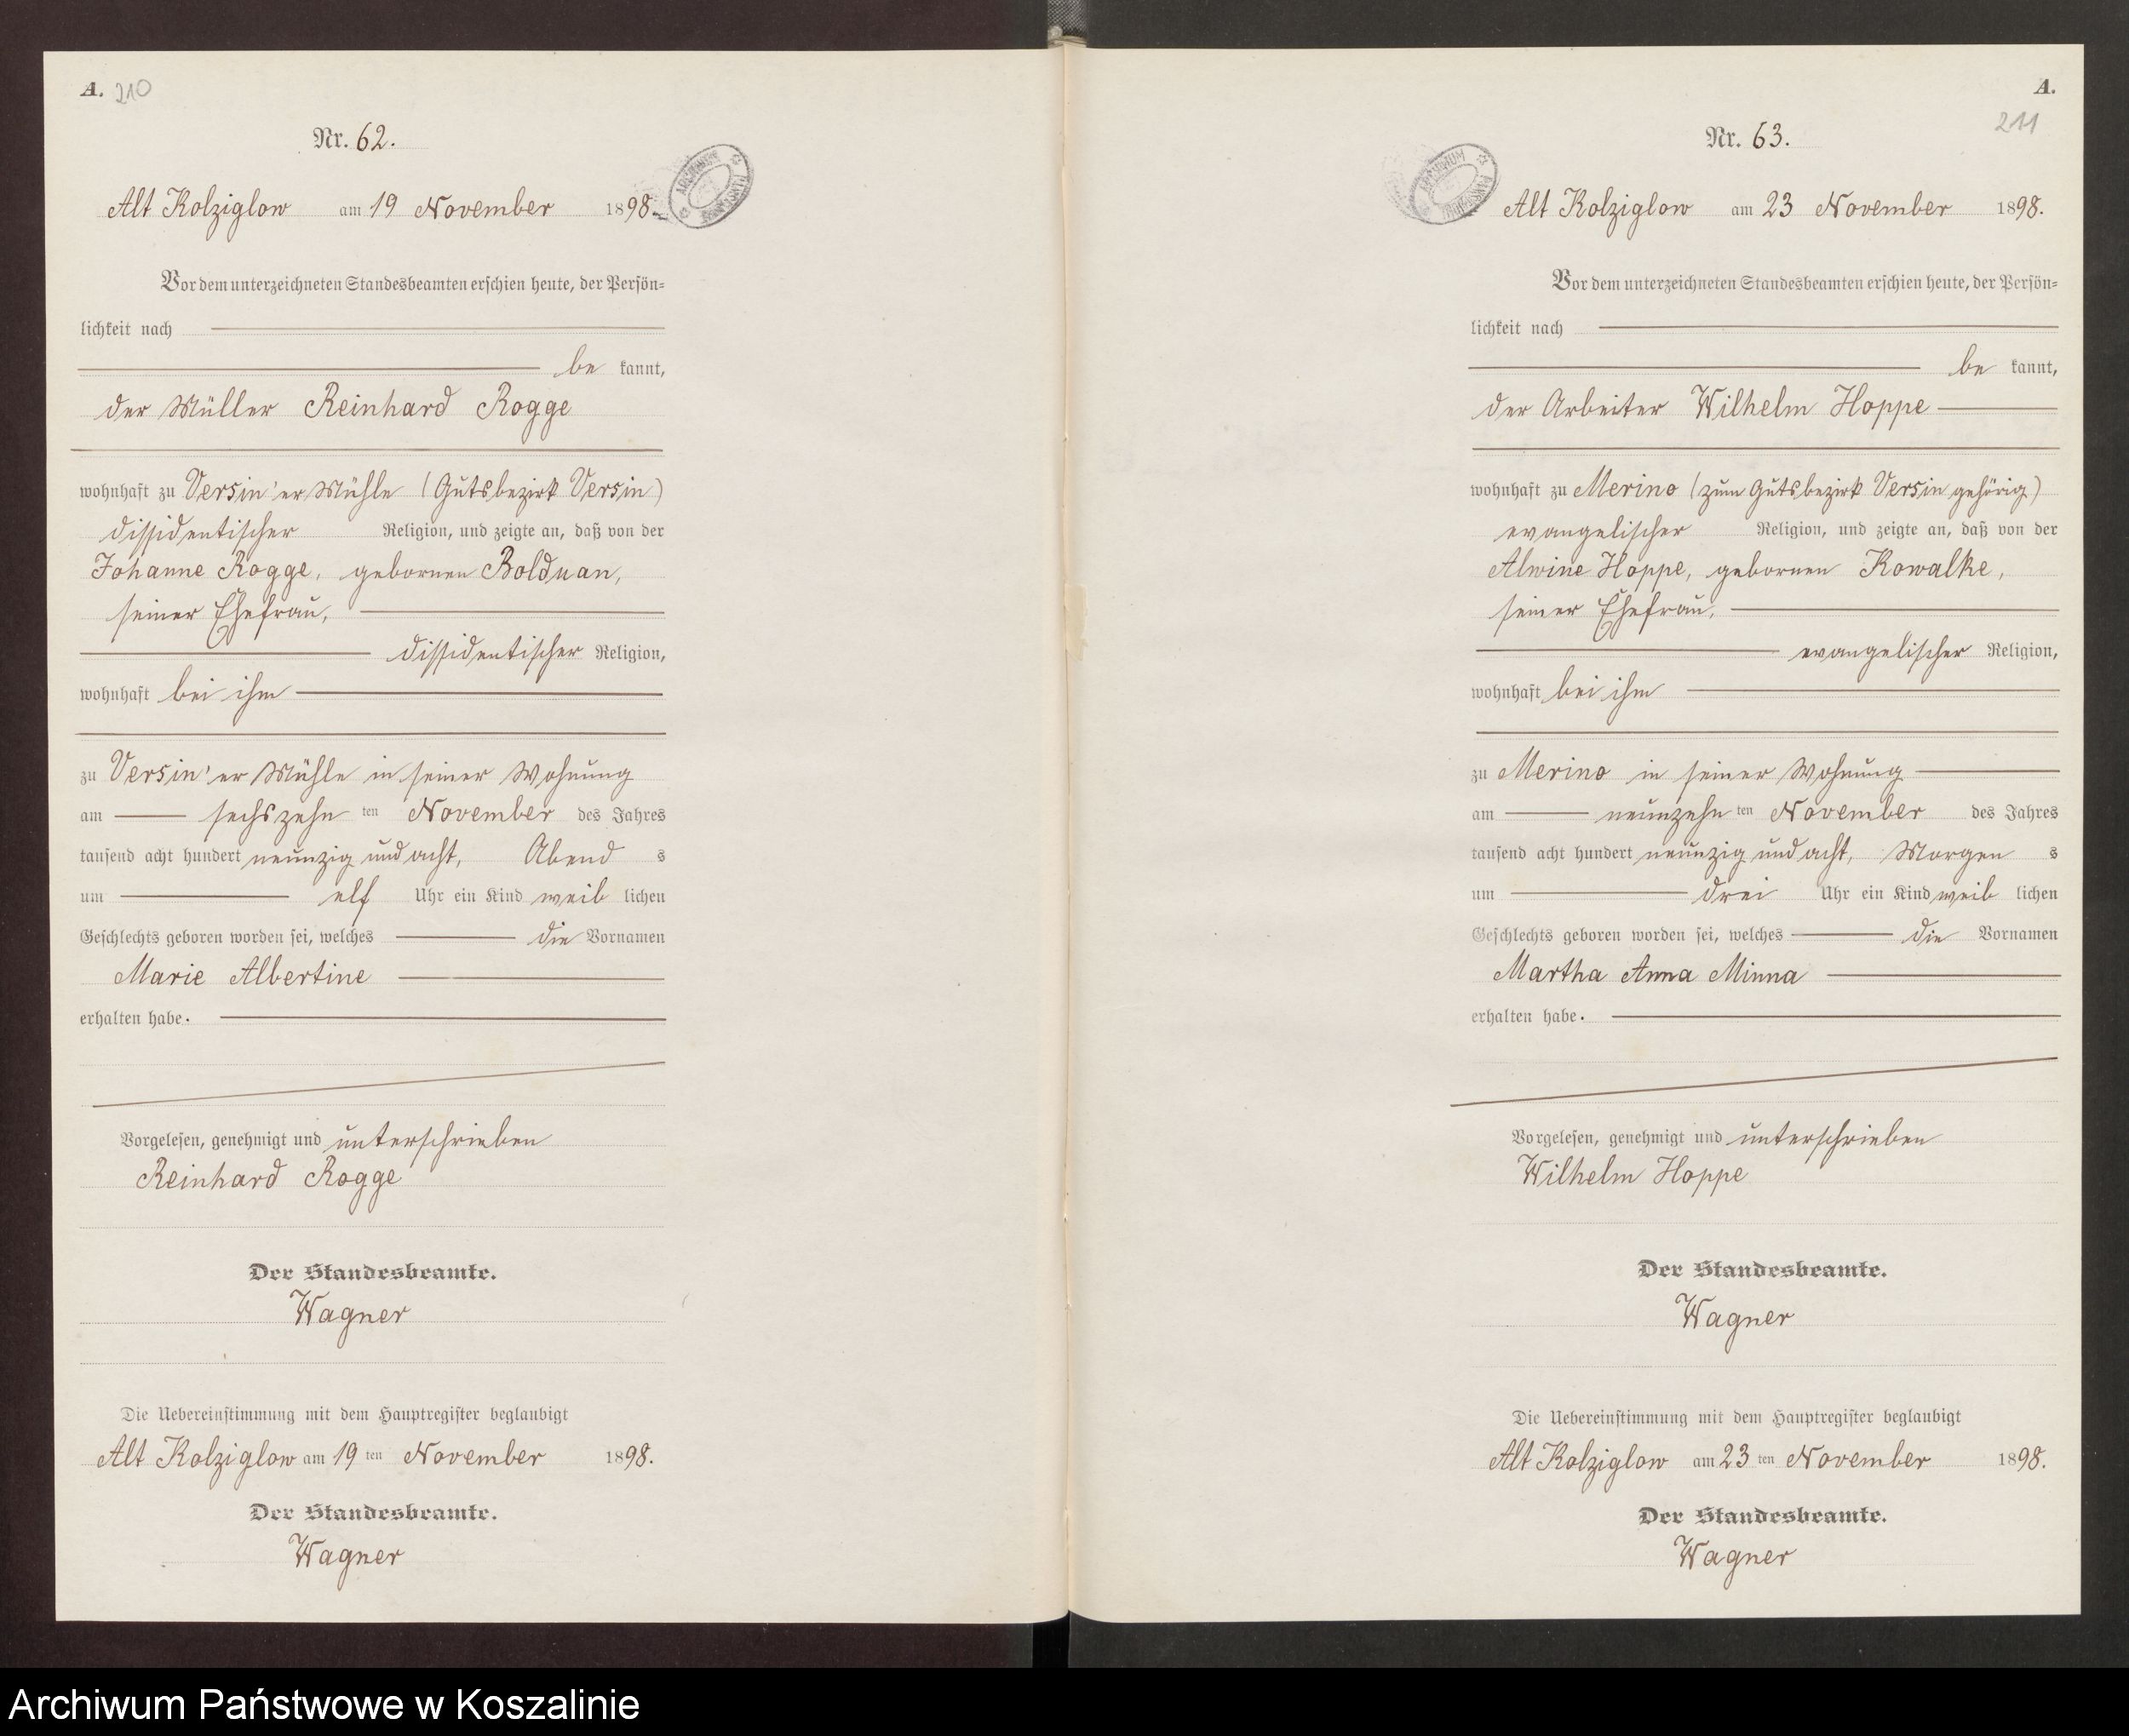 A. 210
Nr. 62.
Alt Kolziglow am 19 November 1898.
Vor dem unterzeichneten Standesbeamten erschien heute, der Persön-
lichkeit nach
be kannt,
der Müller Reinhard Rogge
wohnhaft zu Versin'er Mühle (Gutsbezirk Versin)
dissidentischer Religion, und zeigte an, daß von der
Johanne Rogge, gebornen Bolduan,
seiner Ehefrau,
dissidentischer Religion,
wohnhaft bei ihm
zu Versin'er Mühle in seiner Wohnung
am sechszehn ten November des Jahres
tausend acht hundert neunzig und acht, Abend s
um elf Uhr ein Kind weib lichen
Geschlechts geboren worden sei, welches die Vornamen
Marie Albertine
erhalten habe.
Vorgelesen, genehmigt und unterschrieben
Reinhard Rogge
Der Standesbeamte.
Wagner
Die Uebereinstimmung mit dem Hauptregister beglaubigt
Alt Kolziglow am 19 ten November 1898.
Der Standesbeamte.
Wagner
A.
211
Nr. 63.
ARCHIWUM
Alt Kolziglow am 23 November 1898.
Vor dem unterzeichneten Standesbeamten erschien heute, der Persön-
lichkeit nach
be kannt,
der Arbeiter Wilhelm Hoppe
wohnhaft zu Merino (zum Gutsbezirk Versin gehörig)
evangelischer Religion, und zeigte an, daß von der
Alwine Hoppe, gebornen Kowalke,
seiner Ehefrau,
evangelischer Religion,
wohnhaft bei ihm
zu Merino in seiner Wohnung
am neunzehn ten November des Jahres
tausend acht hundert neunzig und acht, Morgen s
um drei Uhr ein Kind weib lichen
Geschlechts geboren worden sei, welches die Vornamen
Martha Anna Minna
erhalten habe.
Vorgelesen, genehmigt und unterschrieben
Wilhelm Hoppe
Der Standesbeamte.
Wagner
Die Uebereinstimmung mit dem Hauptregister beglaubigt
Alt Kolziglow am 23 ten November 1898.
Der Standesbeamte.
Wagner
Archiwum Państwowe w Koszalinie